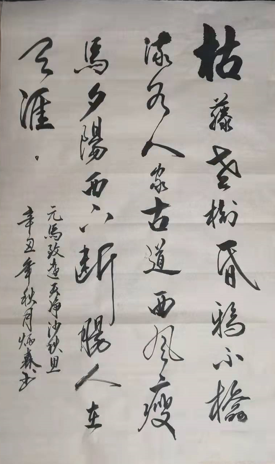 枯藤老樹昏鴉小橋
流水人家古道西風瘦
馬夕陽西下斷腸人在
天涯
元馬致遠天淨沙秋思
辛丑年秋月